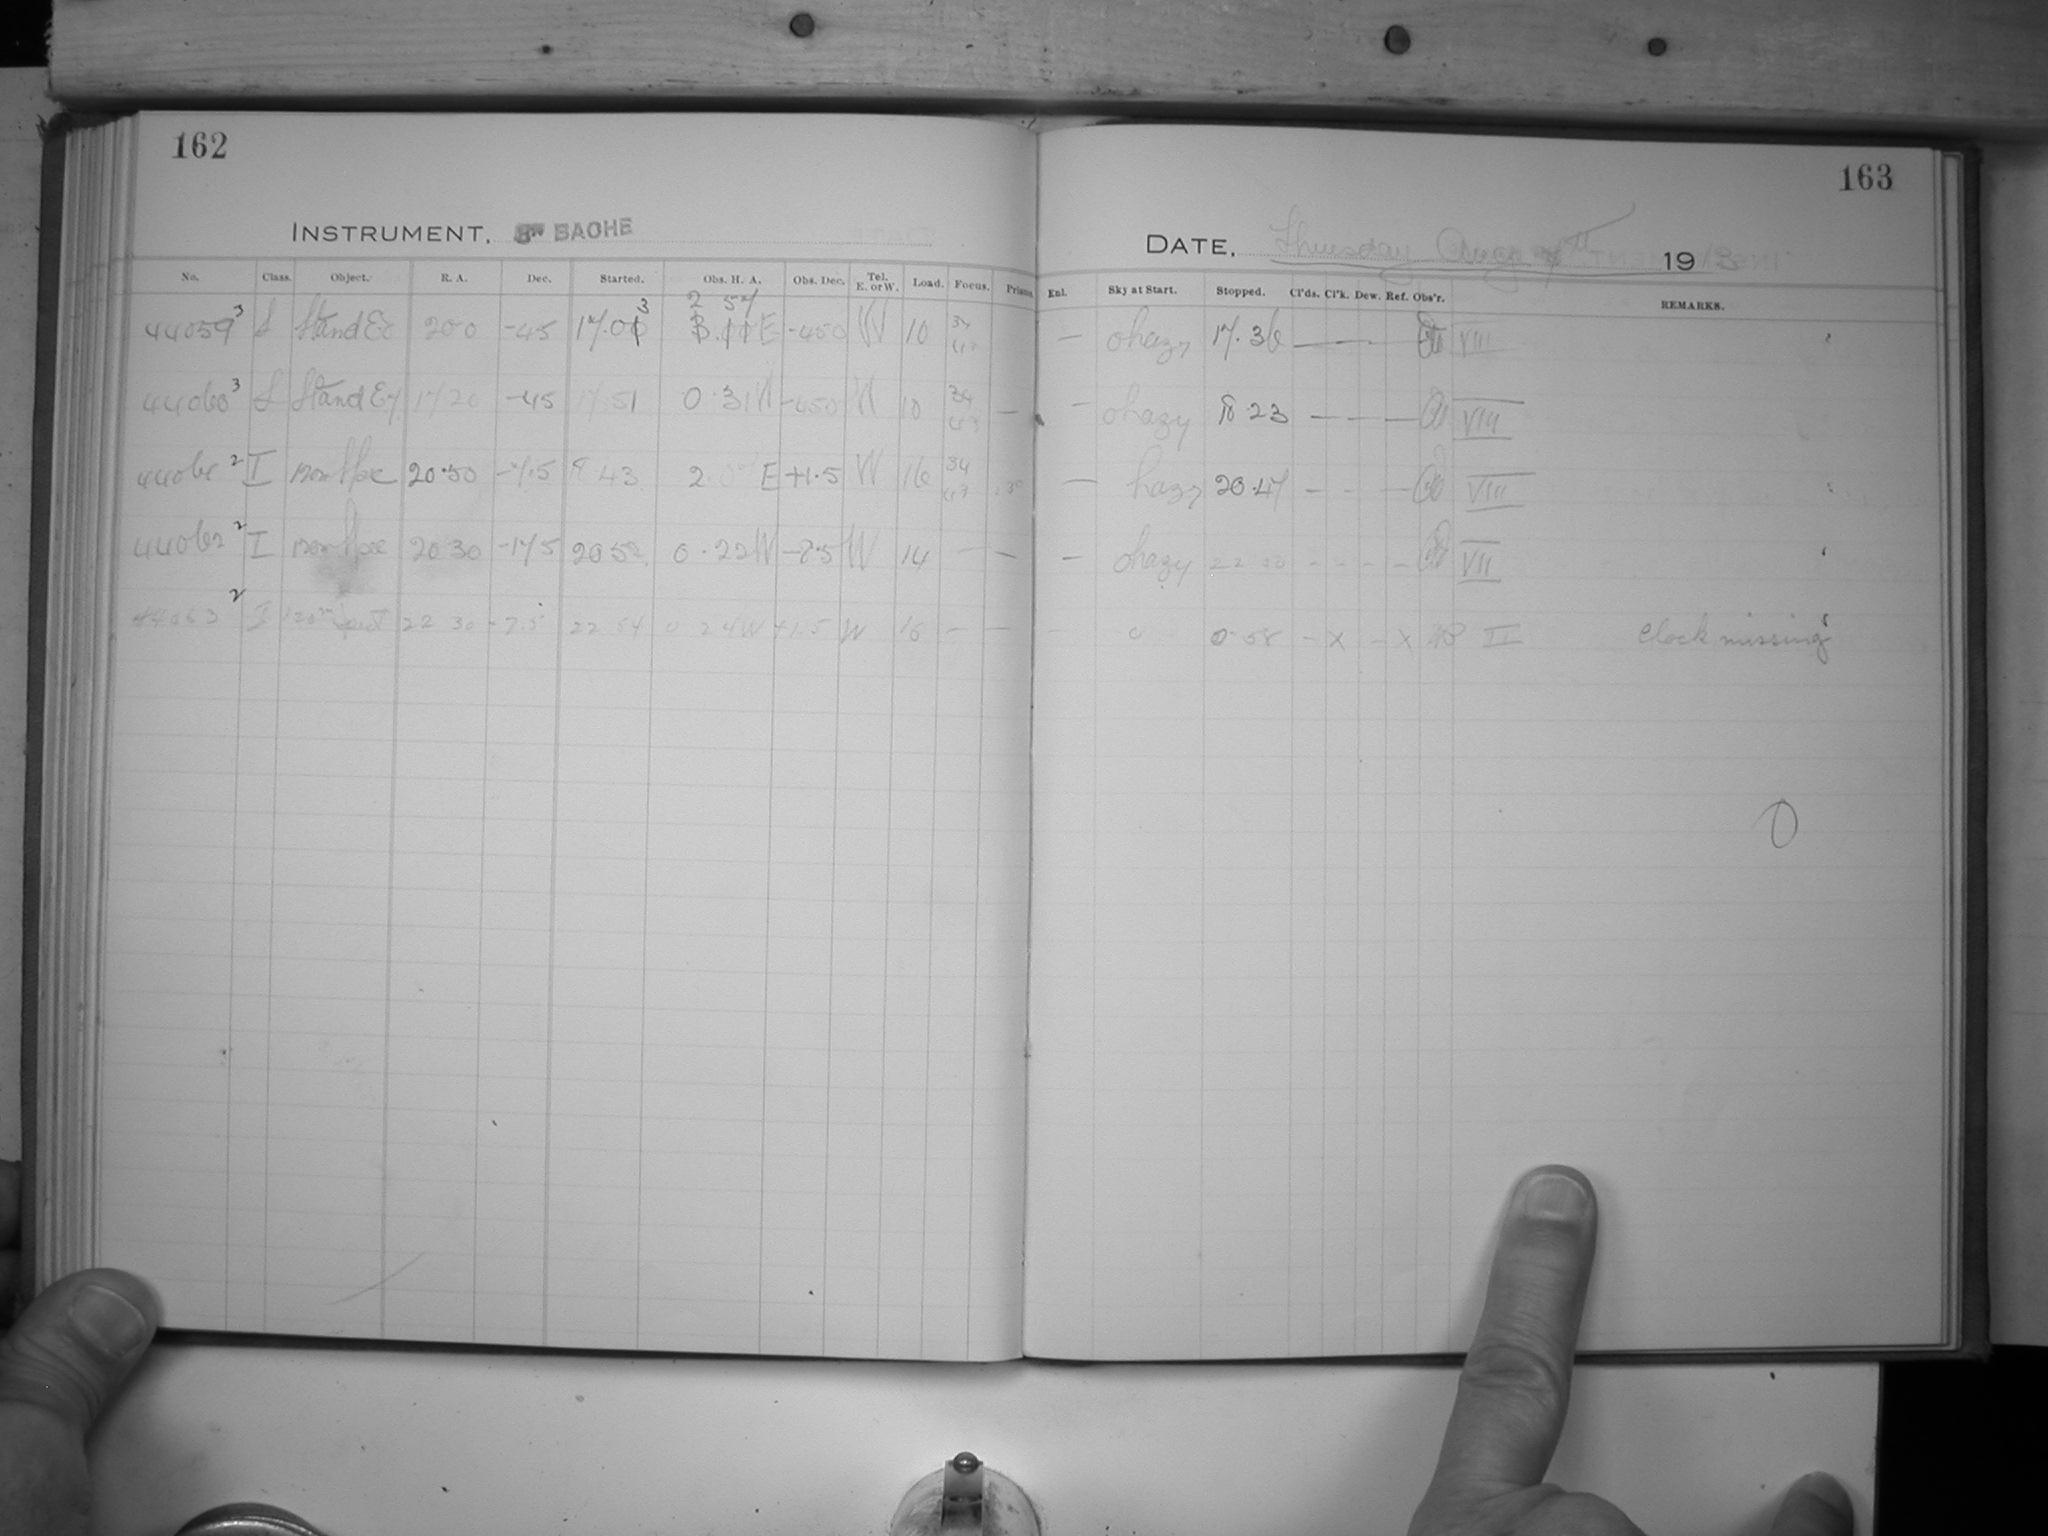 162
INSTRUMENT, 8IN BACHE
No. Class. Object. R. A. Dec. Started. Obs. H. A. Obs. Dec. Tel. E. or W. Load. Focus. Prism.
44059 3 S Stand 20 0 -45 17.03 2 57 E -450 W 10 34
44060 3 S Stand 17 20 -45 17 51 0.31W -450 W 10 34 —
2 I 20.30 -7.5 43 2 E +1.5 W 16 34
44062 2 I 20 30 -17 5 20 52 0.22W -8.5 W 14 — —
44063 2 I 120m 22 30 -7.5 22 54 0 24W +1.5 W 16 — —
163
DATE, Thursday Aug 19 13
Enl. Sky at Start. Stopped. Cl'ds. Cl'k. Dew. Ref. Obs'r. REMARKS.
— ohazy 17.36 — — — VIII
— ohazy 18.23 — — — VIII
— hazy 20.47 - - — VIII
— ohazy 22 50 - - - - VII
0 0.58 - X - X II Clock missing
0